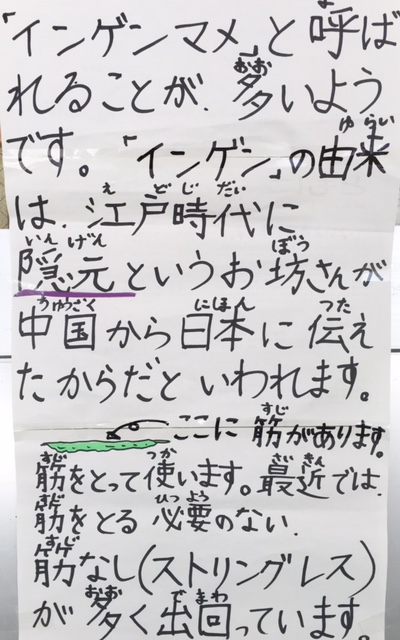 「インゲンマメ」と呼ば
れることが、多いよう
です。「インゲン」の由来
は、江戸時代に
隠元というお坊さんが
中国から日本に伝え
たからだといわれます。
ここに筋があります。
筋をとって使います。最近では、
筋をとる必要のない、
筋なし(ストリングレス)
が多く出回っています。